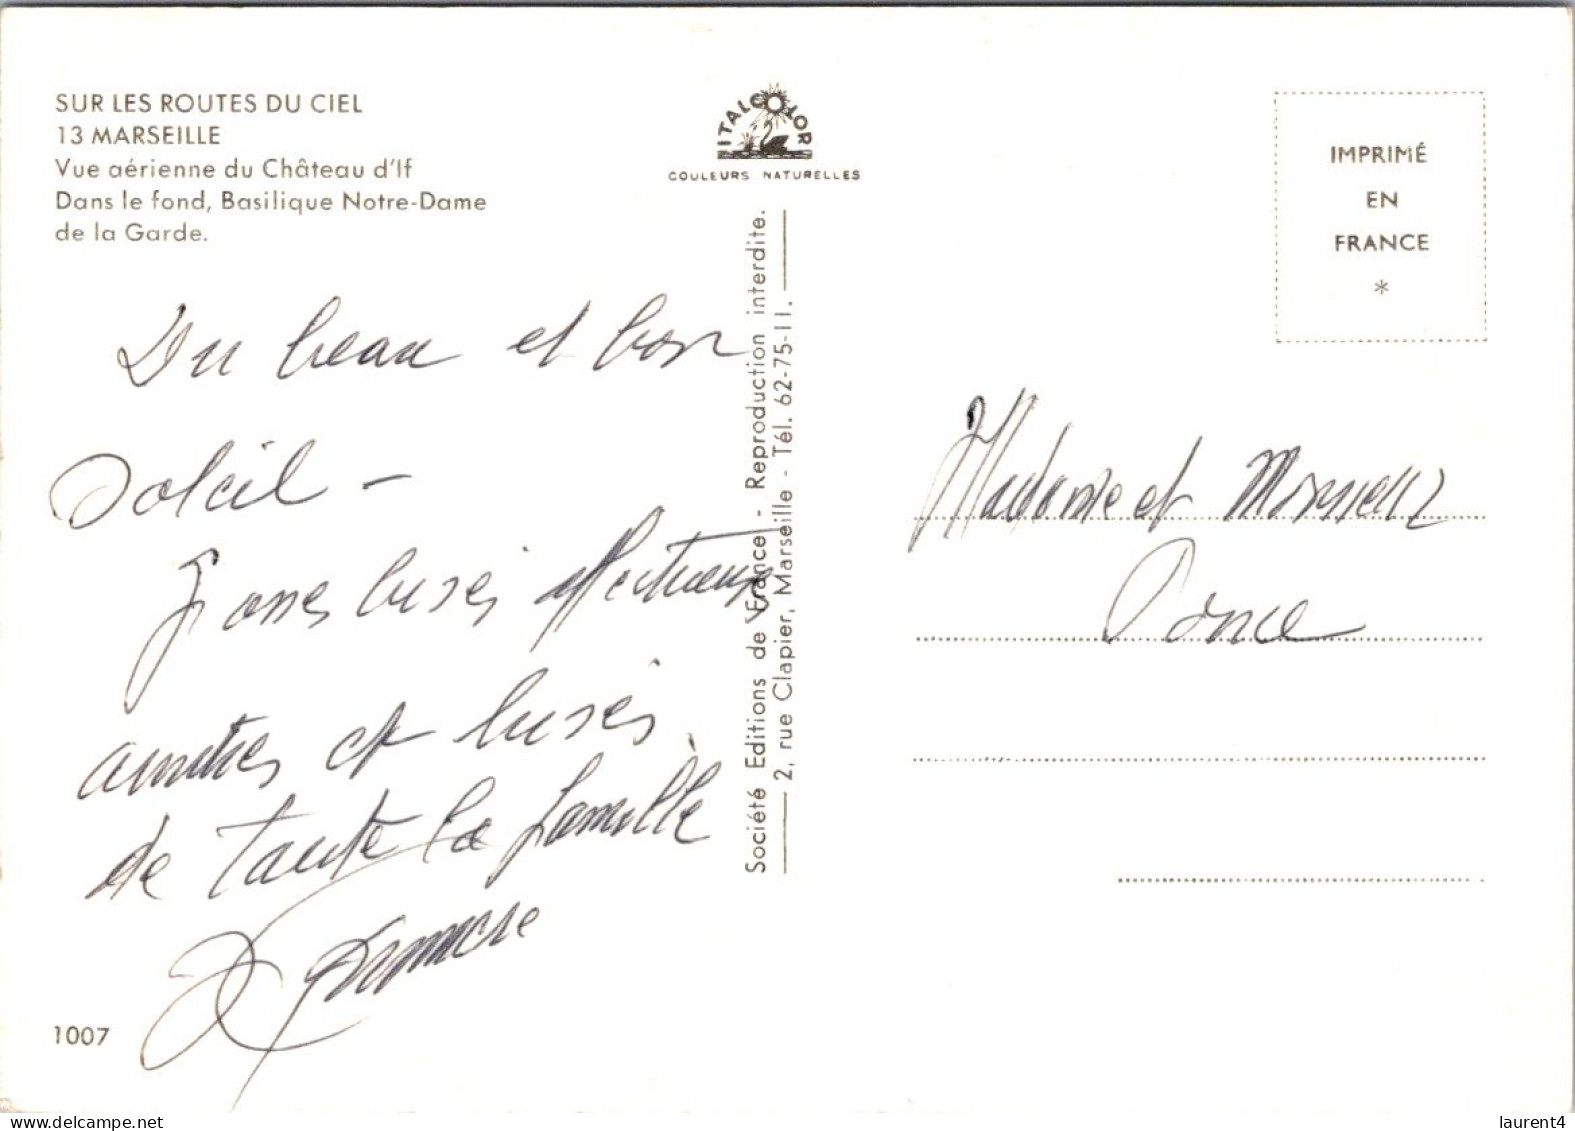 SUR LES ROUTES DU CIEL
13 MARSEILLE
Vue aérienne du Château d'If
Dans le fond, Basilique Notre-Dame
de la Garde.
ITALCOLOR
COULEURS NATURELLES
IMPRIMÉ
EN
FRANCE
*
Du beau et bon
Soleil -
affectueux
amitiés et
de toute la famille
1007
Société Editions de France - Reproduction interdite.
2, rue Clapier, Marseille - Tél. 62-75-11.
Madame et Monsieur
Ponce
www.delcampe.net
laurent4